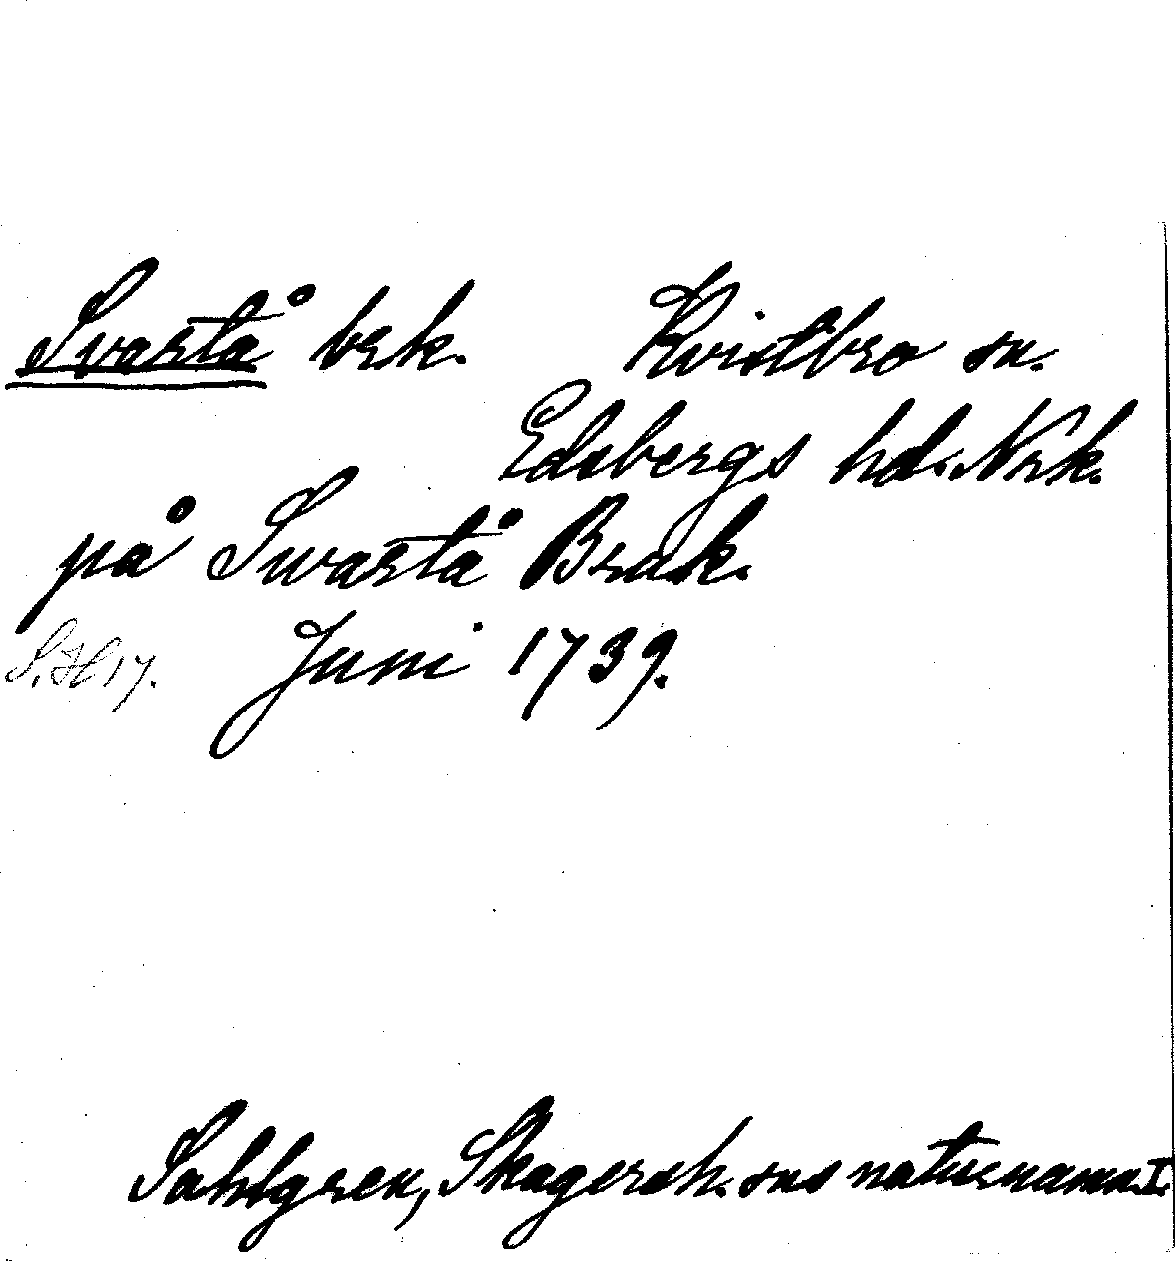 Svartå brk. Kvistbro sn.
Edsbergs hd. Nrk.
på Swartå Bruk.
S. H 17. Juni 1739.
Sahlgren, Skagersh. sns naturnamn I.